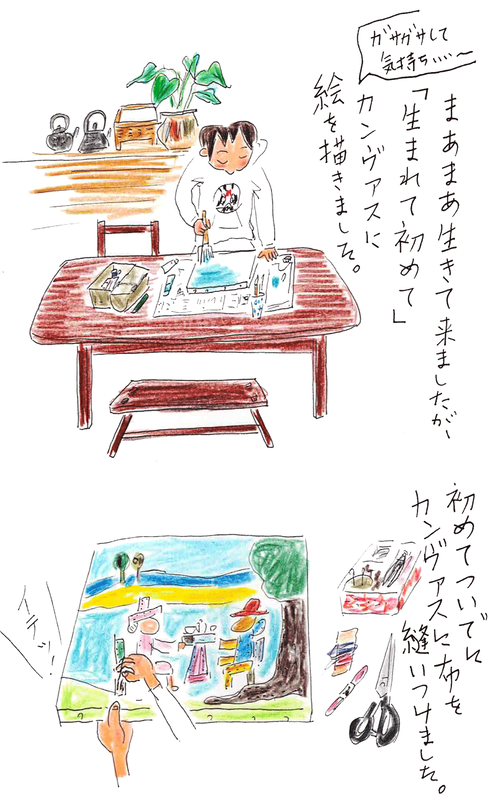 まあまあ生きて来ましたが、
「生まれて初めて」
カンヴァスに
絵を描きました。
ガサガサして
気持ちいい〜
初めてついでに
カンヴァスに布を
縫いつけました。
イテッ!